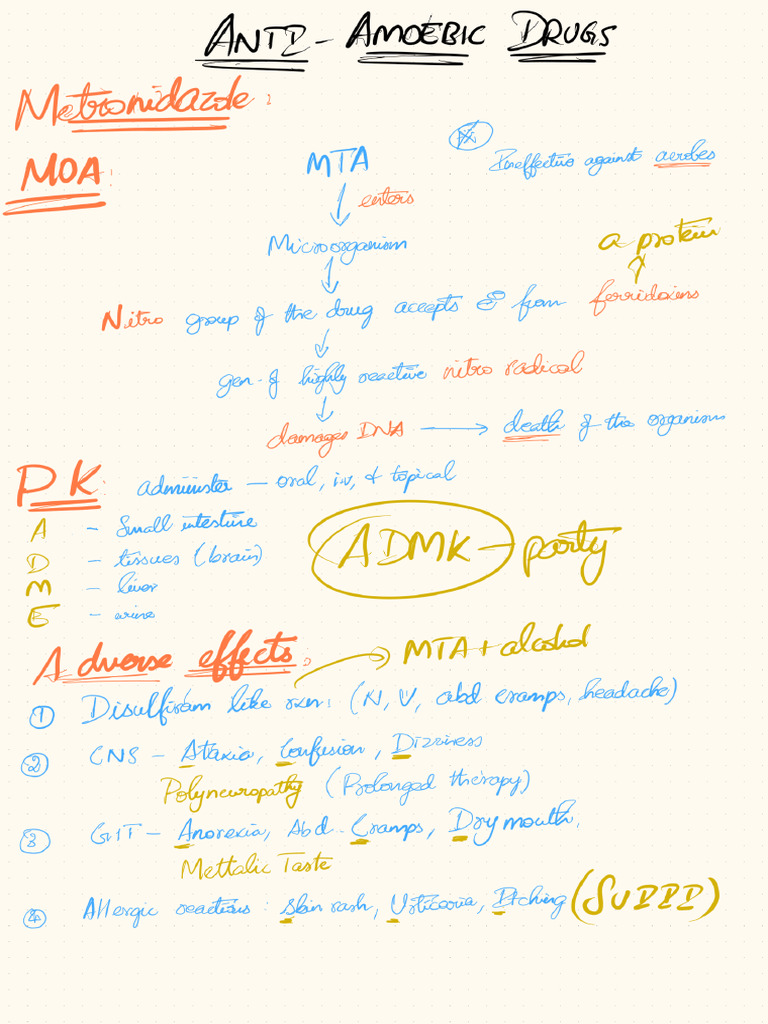 ANTI - AMOEBIC DRUGS
Metronidazole :
MOA :
MTA
Ineffective against aerobes
enters
Microorganism
a protein
Nitro group of the drug accepts e from ferridoxins
gen. of highly reactive nitro radical
damages DNA → death of the organism
PK : administer — oral, i.v, & topical
A - Small intestine
D - tissues (brain)
M - liver
E - urine
ADMK - party
Adverse effects :
MTA + alcohol
① Disulfiram like rxn : (N, V, abd cramps, headache)
② CNS - Ataxia, Confusion, Dizziness
Polyneuropathy (Prolonged therapy)
③ GIT - Anorexia, Abd. Cramps, Dry mouth,
Mettalic Taste
④ Allergic reactions : Skin rash, Urticaria, Itching (SUIII)